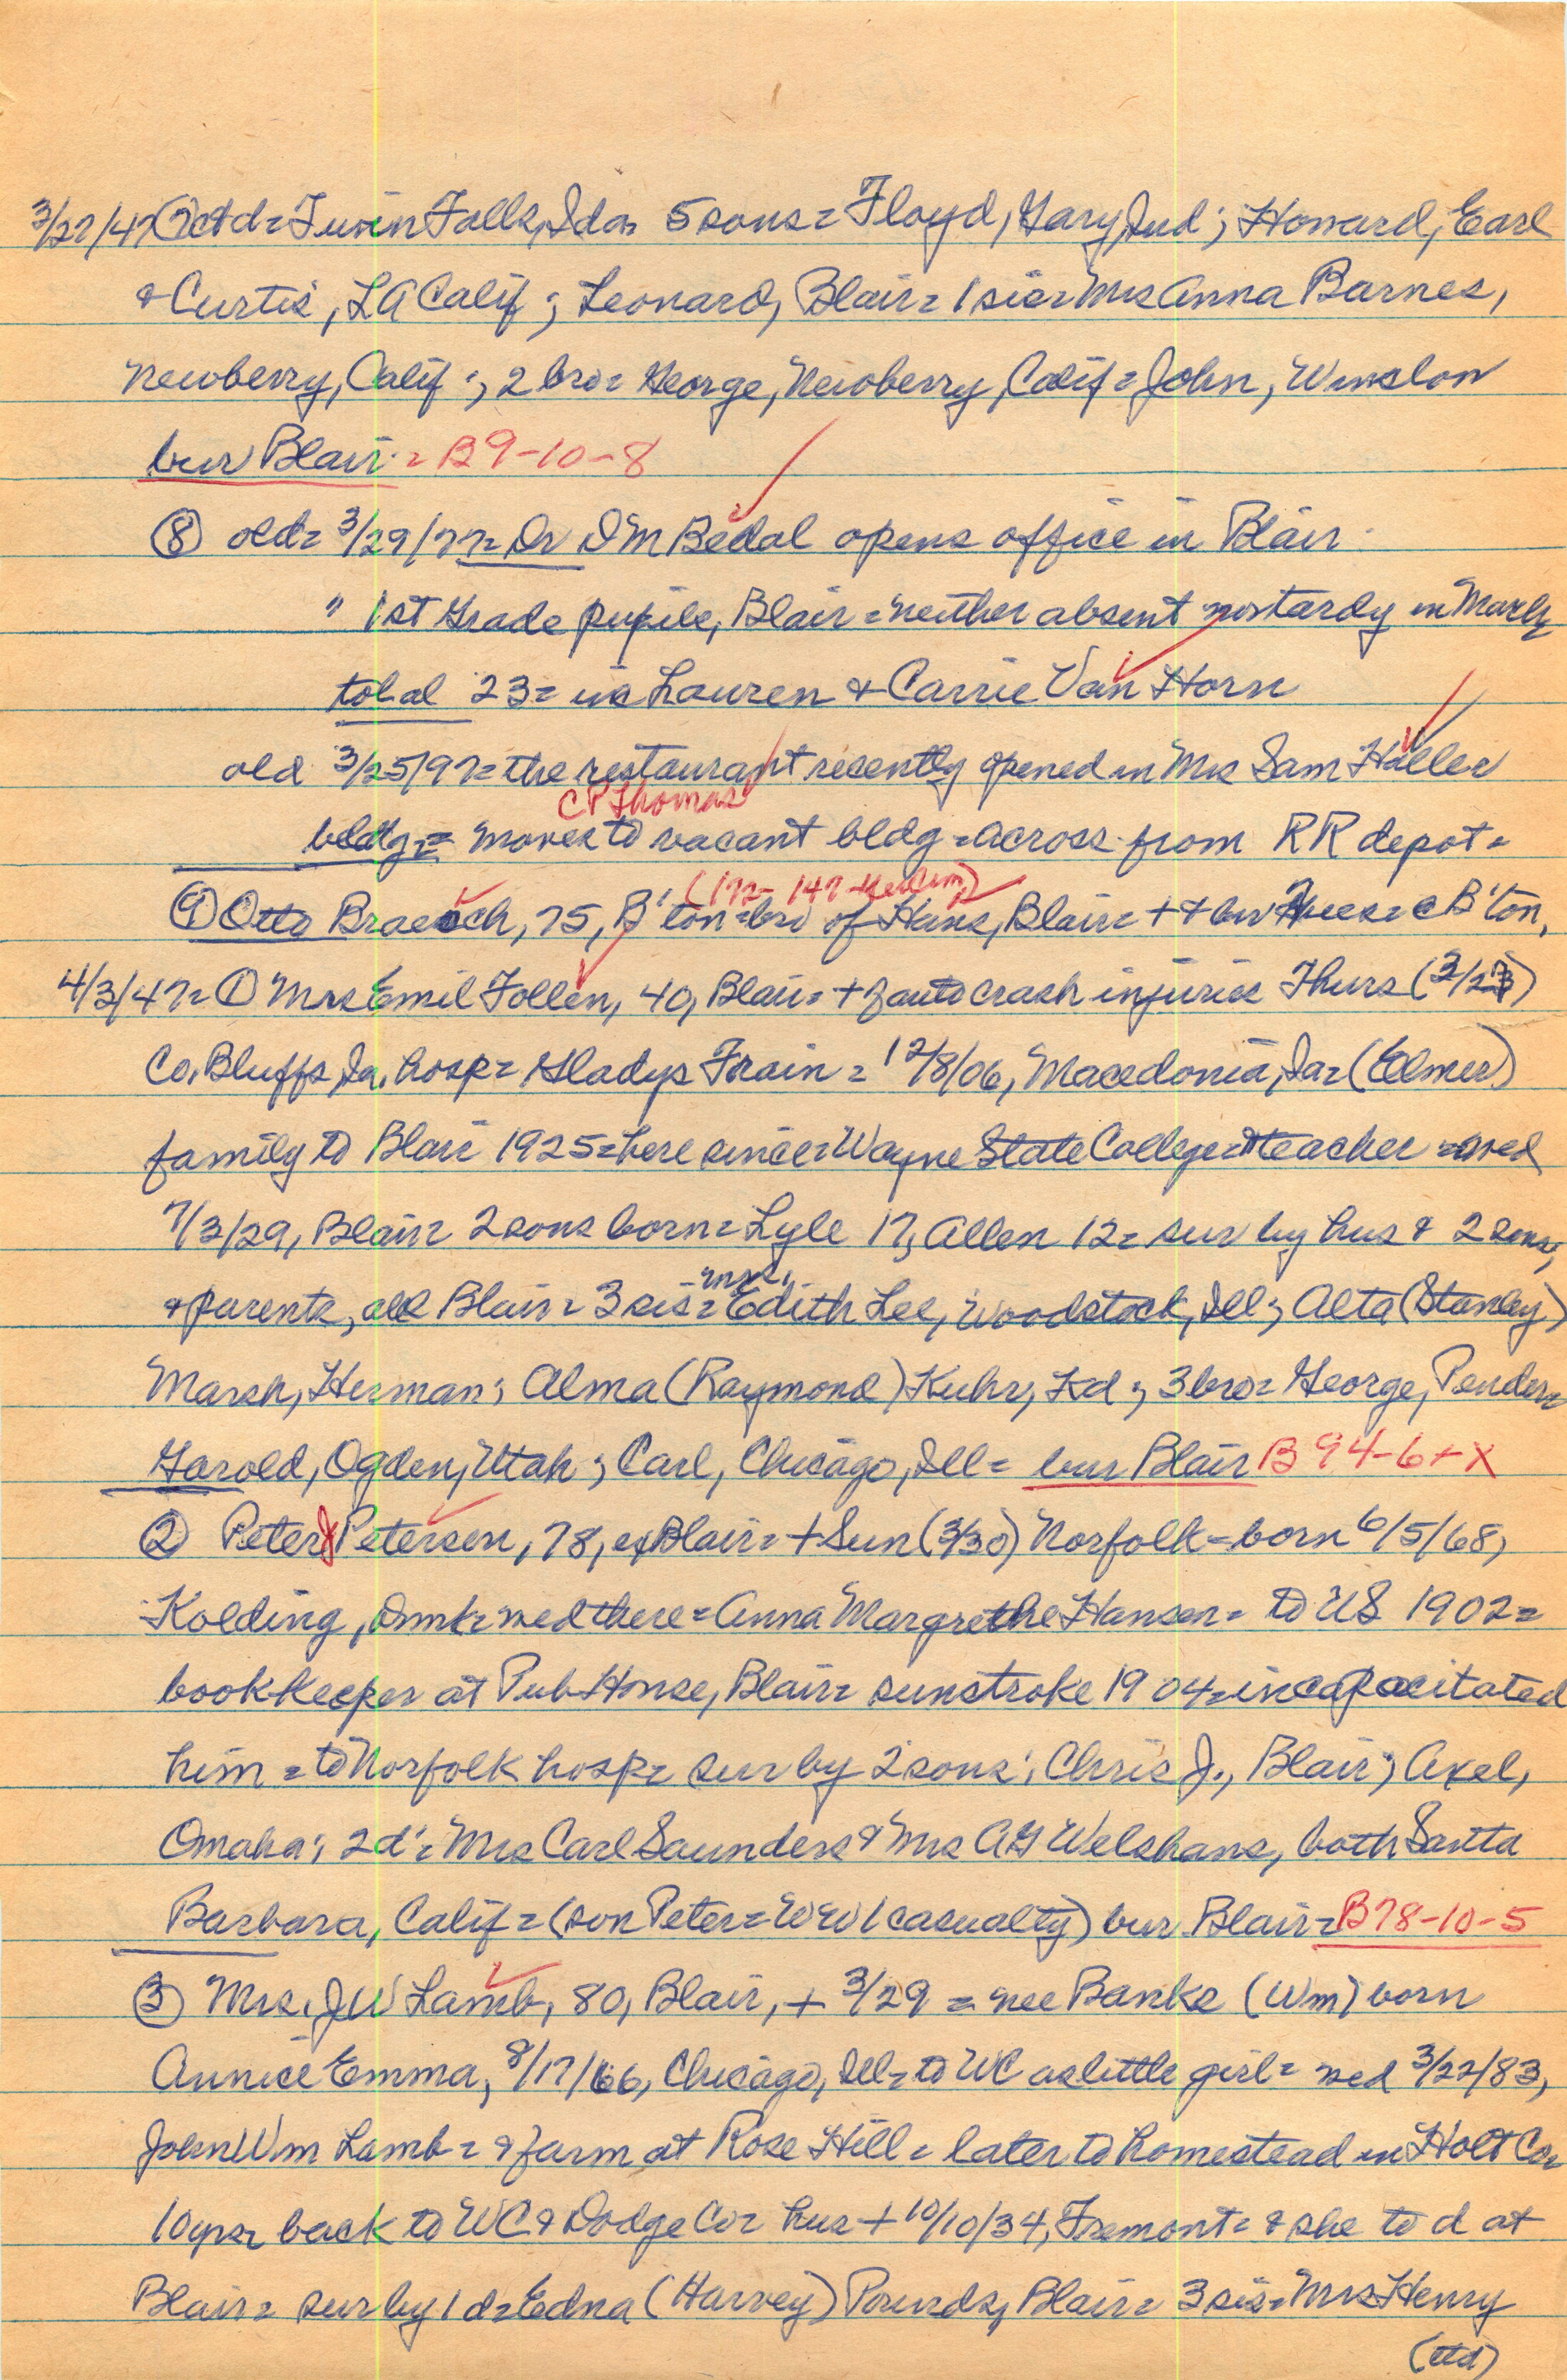 3/27/47 (7) ctd = Twin Falls, Ida = 5 sons = Floyd, Gary, Ind ; Howard, Earl
& Curtis, LA Calif ; Leonard, Blair = 1 sis = Mrs Anna Barnes,
Newberry, Calif ; 2 bro = George, Newberry, Calif = John, Winslow
bur Blair = B9-10-8
⑧ old = 3/29/77 = Dr DM Bedal opens office in Blair
" 1st Grade pupils, Blair = neither absent nor tardy in March
total 23 = inc Lauren & Carrie Van Horn
old 3/25/97 = the restaurant recently opened in Mrs Sam Haller
CP Thomas
bldg = moves to vacant bldg = across from RR depot =
(172-147-
⑨ Otto Braesch, 75, B'ton = bro of Hans, Blair = + & bur = B'ton,
4/3/47 = ① Mrs Emil Follen, 40, Blair = + of auto crash injuries Thurs (3/27)
Co. Bluffs, Ia. hosp = Gladys Frain = 12/8/06, Macedonia, Ia = (Elmer)
family to Blair 1925 = here since = Wayne State College = teacher = wed
7/3/29, Blair = 2 sons born = Lyle 17, Allen 12 = sur by hus & 2 sons,
mrs.
& parents, all Blair = 3 sis = Edith Lee, Woodstock, Ill ; Alta (Stanley)
Marsh, Herman ; Alma (Raymond) Kuhr, Kd ; 3 bro = George, Pender =
Harold, Ogden, Utah ; Carl, Chicago, Ill = bur Blair B 94-6+X
② Peter J Petersen, 78, ex Blair = + Sun (3/30) Norfolk = born 6/5/68,
Kolding, Dnmk = wed there = Anna Margrethe Hansen = to US 1902 =
bookkeeper at Pub House, Blair = sunstroke 1904 = incapacitated
him = to Norfolk hosp = sur by 2 sons ; Chris J., Blair ; Axel,
Omaha ; 2 d = Mrs Carl Saunders & Mrs AG Welshans, both Santa
Barbara, Calif = (son Peter = WW1 casualty) bur Blair = B78-10-5
③ Mrs. JW Lamb, 80, Blair, + 3/29 = nee Banks (Wm) born
Annice Emma, 8/17/66, Chicago, Ill = to WC as little girl = wed 3/22/83,
John Wm Lamb = & farm at Rose Hill = later to homestead in Holt Co =
10 yrs = back to WC & Dodge Co = hus + 10/10/34, Fremont = & she to d at
Blair = sur by 1 d = Edna (Harvey) Pounds, Blair = 3 sis = Mrs Henry
(ctd)